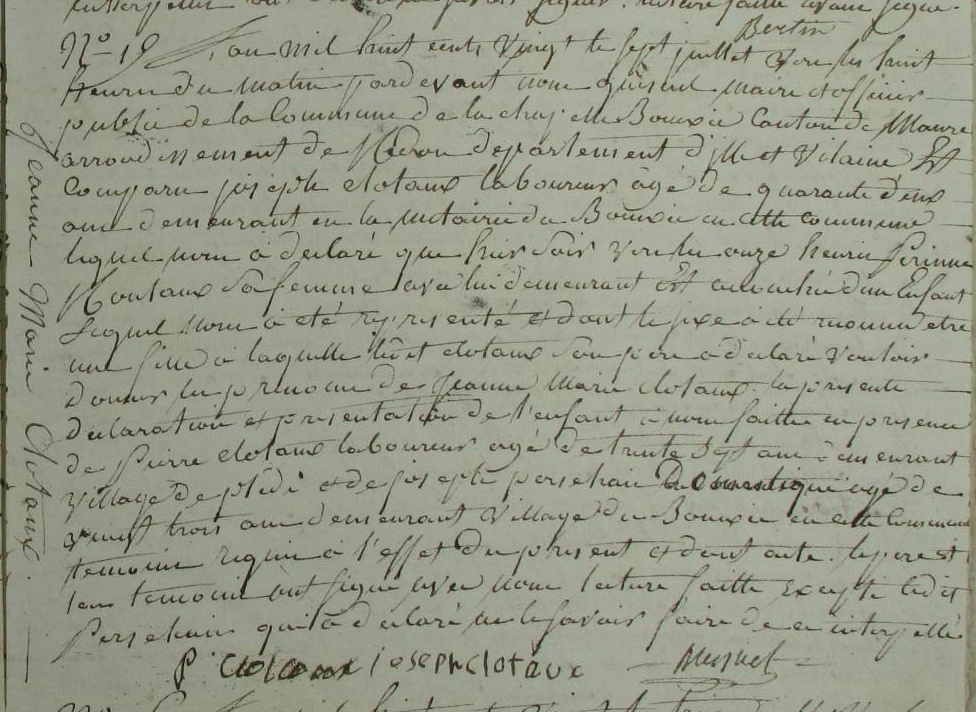 Bertin
N° 19 L'an mil huit cent vingt le sept juillet vers les huit
heures du matin pardevant nous maire et officier
public de la Commune de la chapelle Bouxic Canton de Maure
arrondissement de Redon departement d'ille et Vilaine Est
Comparu joseph clotaux laboureur âgé de quarante deux
ans demeurant en la métairie du Bouxic en cette commune
lequel nous a déclaré que hier soir vers les onze heures Perinne
Houtaux sa femme avec lui demeurant Est accouchée d'un Enfant
Lequel nous à été représenté et dont le sexe a été reconnu etre
une fille à laquelle ledit clotaux son pere a déclaré vouloir
donner les prenoms de Jeanne Marie clotaux. la presente
declaration et presentation de l'enfant à nous faitte en presence
de Pierre clotaux laboureur agé de trente sept ans demeurant
village de et de joseph persehais Domestique agé de
vingt trois ans demeurant Village du Bouxic en cette Commune
temoins requis à l'effet du present et dont acte. le pere et
les temoins ont signé avec nous lecture faitte Excepté ledit
Persehais qui a déclaré ne le savoir faire de ce interpellé
P Clotaux joseph Clotaux
Jeanne Marie Clotaux.